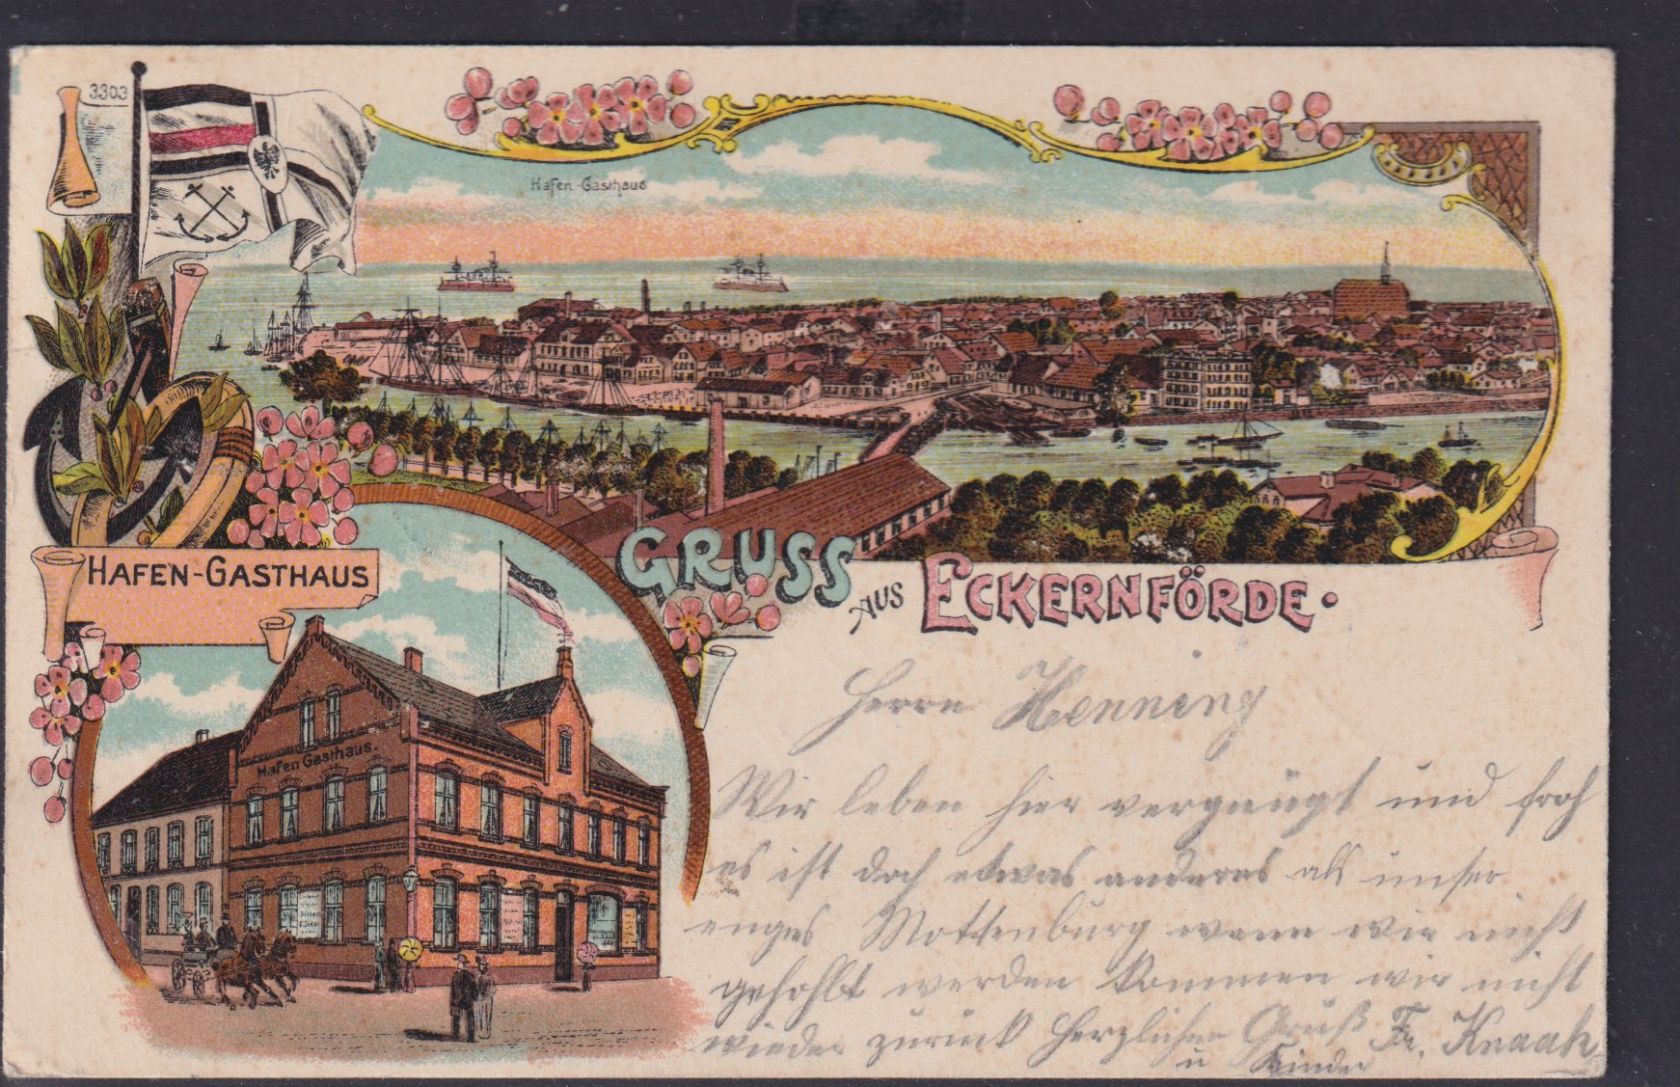 3303
Hafen-Gasthaus
HAFEN-GASTHAUS
GRUSS AUS ECKERNFÖRDE.
Hafen Gasthaus.
Herrn Henning
Wir leben hier vergnügt und froh
es ist doch etwas anderes als unser
enges Mottenburg wenn wir nicht
gehohlt werden kommen wir nicht
wieder zurück Herzlichen Gruß Fr. Knaak
u Kinder